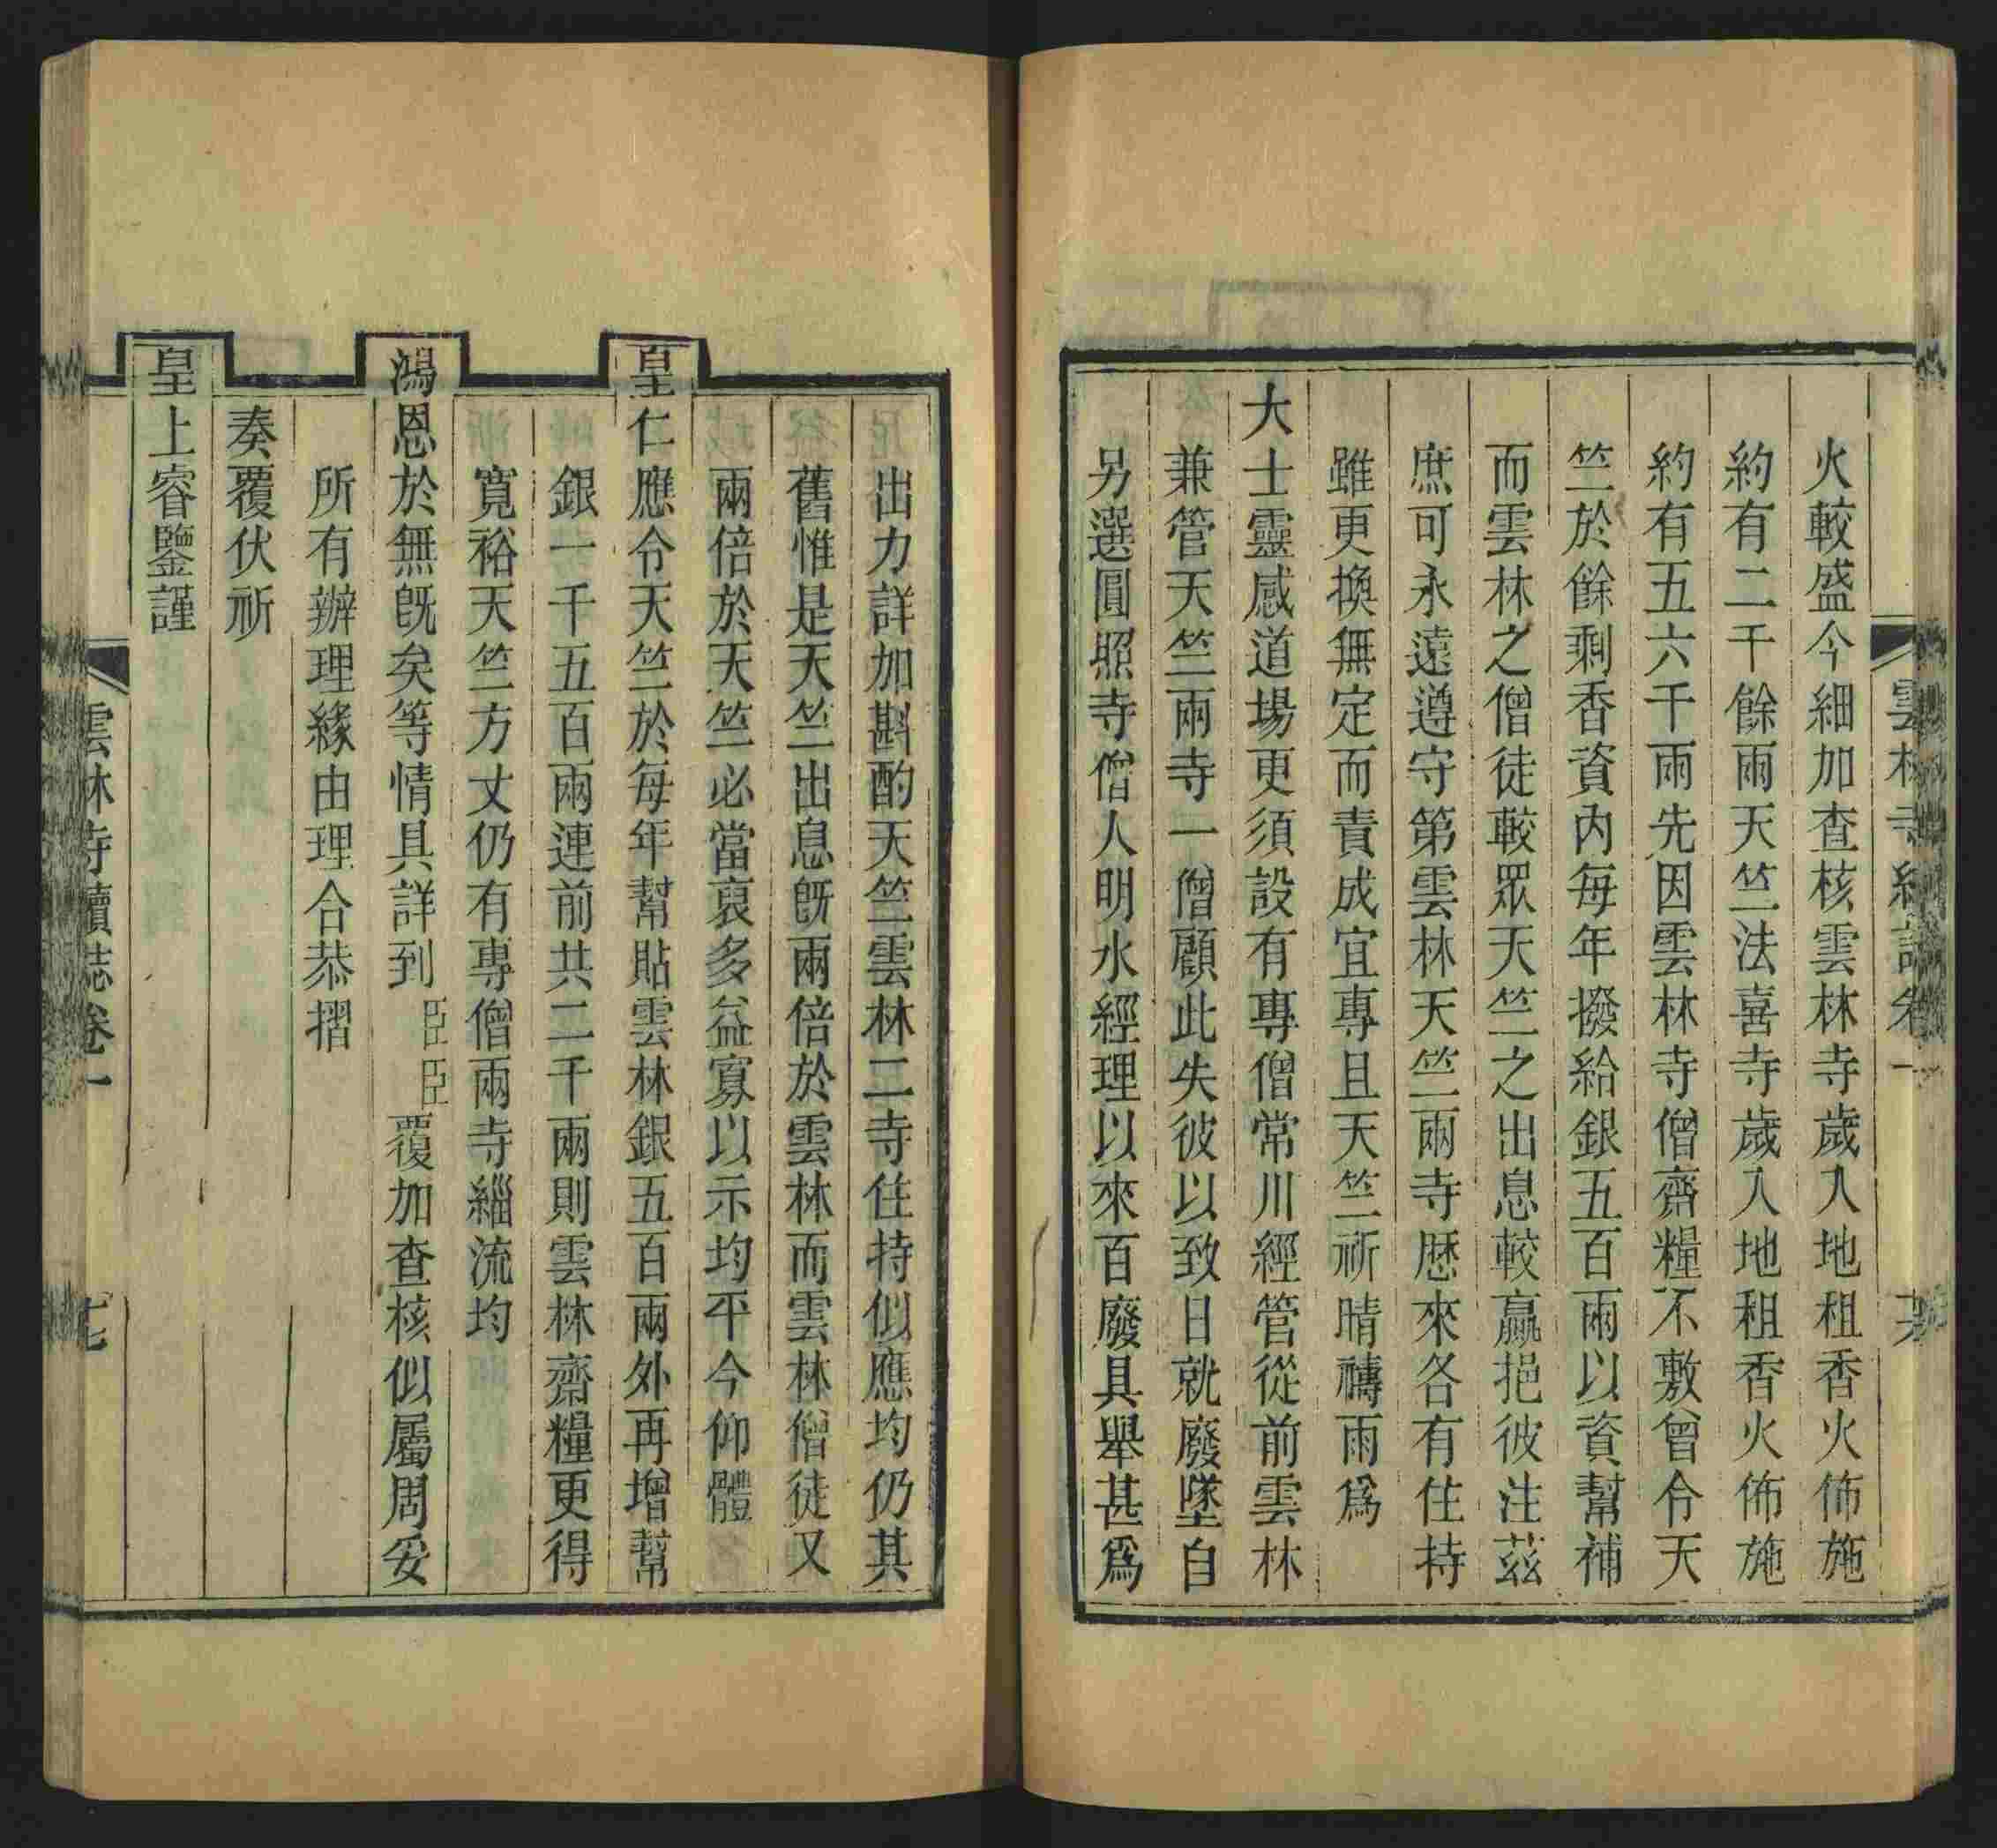 雲林寺續誌卷一
十六
火較盛今細加查核雲林寺歲入地租香火佈施
約有二千餘兩天竺法喜寺歲入地租香火佈施
約有五六千兩先因雲林寺僧齋糧不敷曾令天
竺於餘剩香資內每年撥給銀五百兩以資幫補
而雲林之僧徒較眾天竺之出息較贏挹彼注茲
庶可永遠遵守第雲林天竺兩寺歷來各有住持
雖更換無定而責成宜專且天竺祈晴禱雨為
大士靈感道場更須設有專僧常川經管從前雲林
兼管天竺兩寺一僧顧此失彼以致日就廢墜自
另選圓照寺僧人明水經理以來百廢具舉甚為
出力詳加斟酌天竺雲林二寺住持似應均仍其
舊惟是天竺出息旣兩倍於雲林而雲林僧徒又
兩倍於天竺必當裒多益寡以示均平今仰體
皇仁應令天竺於每年幫貼雲林銀五百兩外再增幫
銀一千五百兩連前共二千兩則雲林齋糧更得
寬裕天竺方丈仍有專僧兩寺緇流均
鴻恩於無旣矣等情具詳到臣臣覆加查核似屬周妥
所有辦理緣由理合恭摺
奏覆伏祈
皇上睿鑒謹
雲林寺續誌卷一
十七